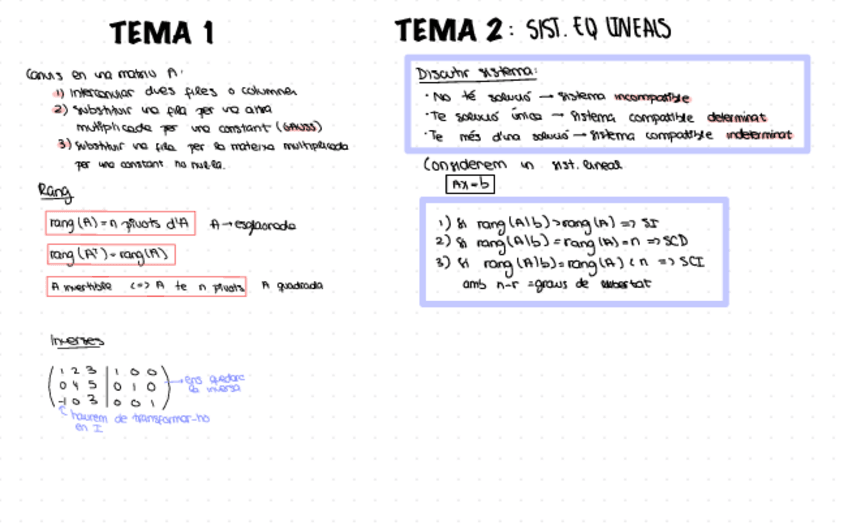 TEMA 1
Canvis en una matriu A:
1) Intercanviar dues files o columnes
2) Substituir una fila per una altra
multiplicada per una constant (GAUSS)
3) Substituir una fila per la mateixa multiplicada
per una constant no nul·la.
Rang
rang(A)=n pivots d'A A→esglaonada
rang(Aᵀ)=rang(A)
A invertible <=> A te n pivots A quadrada
Inverses
1 2 3 | 1 0 0
0 4 5 | 0 1 0
-1 0 3 | 0 0 1
→ens quedarà
la inversa
haurem de transformar-ho
en I
TEMA 2: SIST. EQ LINEALS
Discutir sistema:
· No té solució → Sistema incompatible
· Te solució única → Sistema compatible determinat
· Te més d'una solució → Sistema compatible indeterminat
Considerem un sist. lineal
Ax=b
1) Si rang(A|b)>rang(A) => SI
2) Si rang(A|b)=rang(A)=n => SCD
3) Si rang(A|b)=rang(A)<n => SCI
amb n-r =graus de llibertat